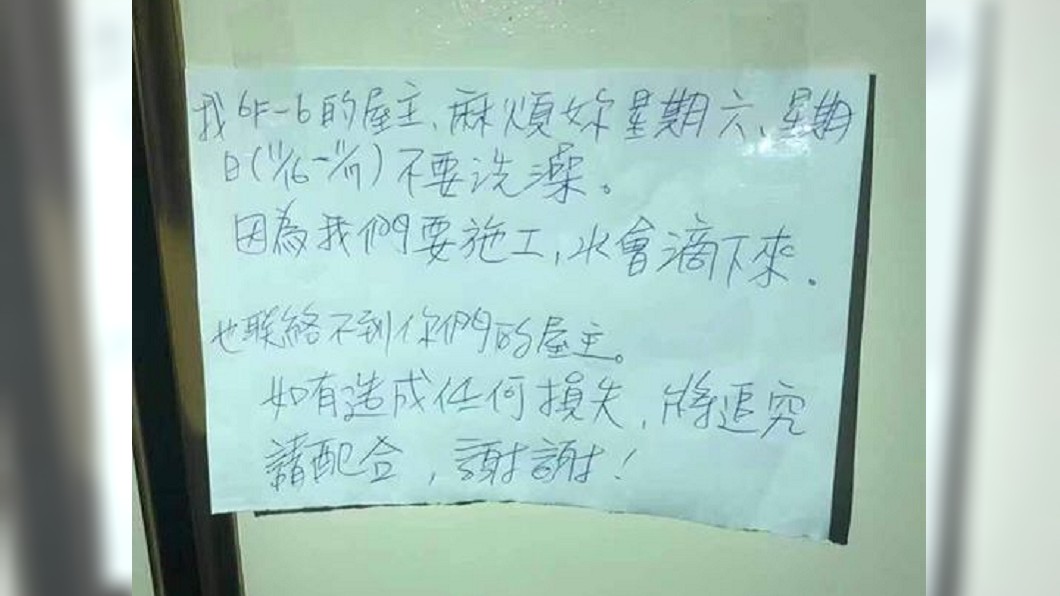 我6F-6的屋主、麻煩妳星期六、星期
日(11/16-11/17)不要洗澡。
因為我們要施工,水會滴下來.
也聯絡不到你們的屋主。
如有造成任何損失,將追究
請配合,謝謝!